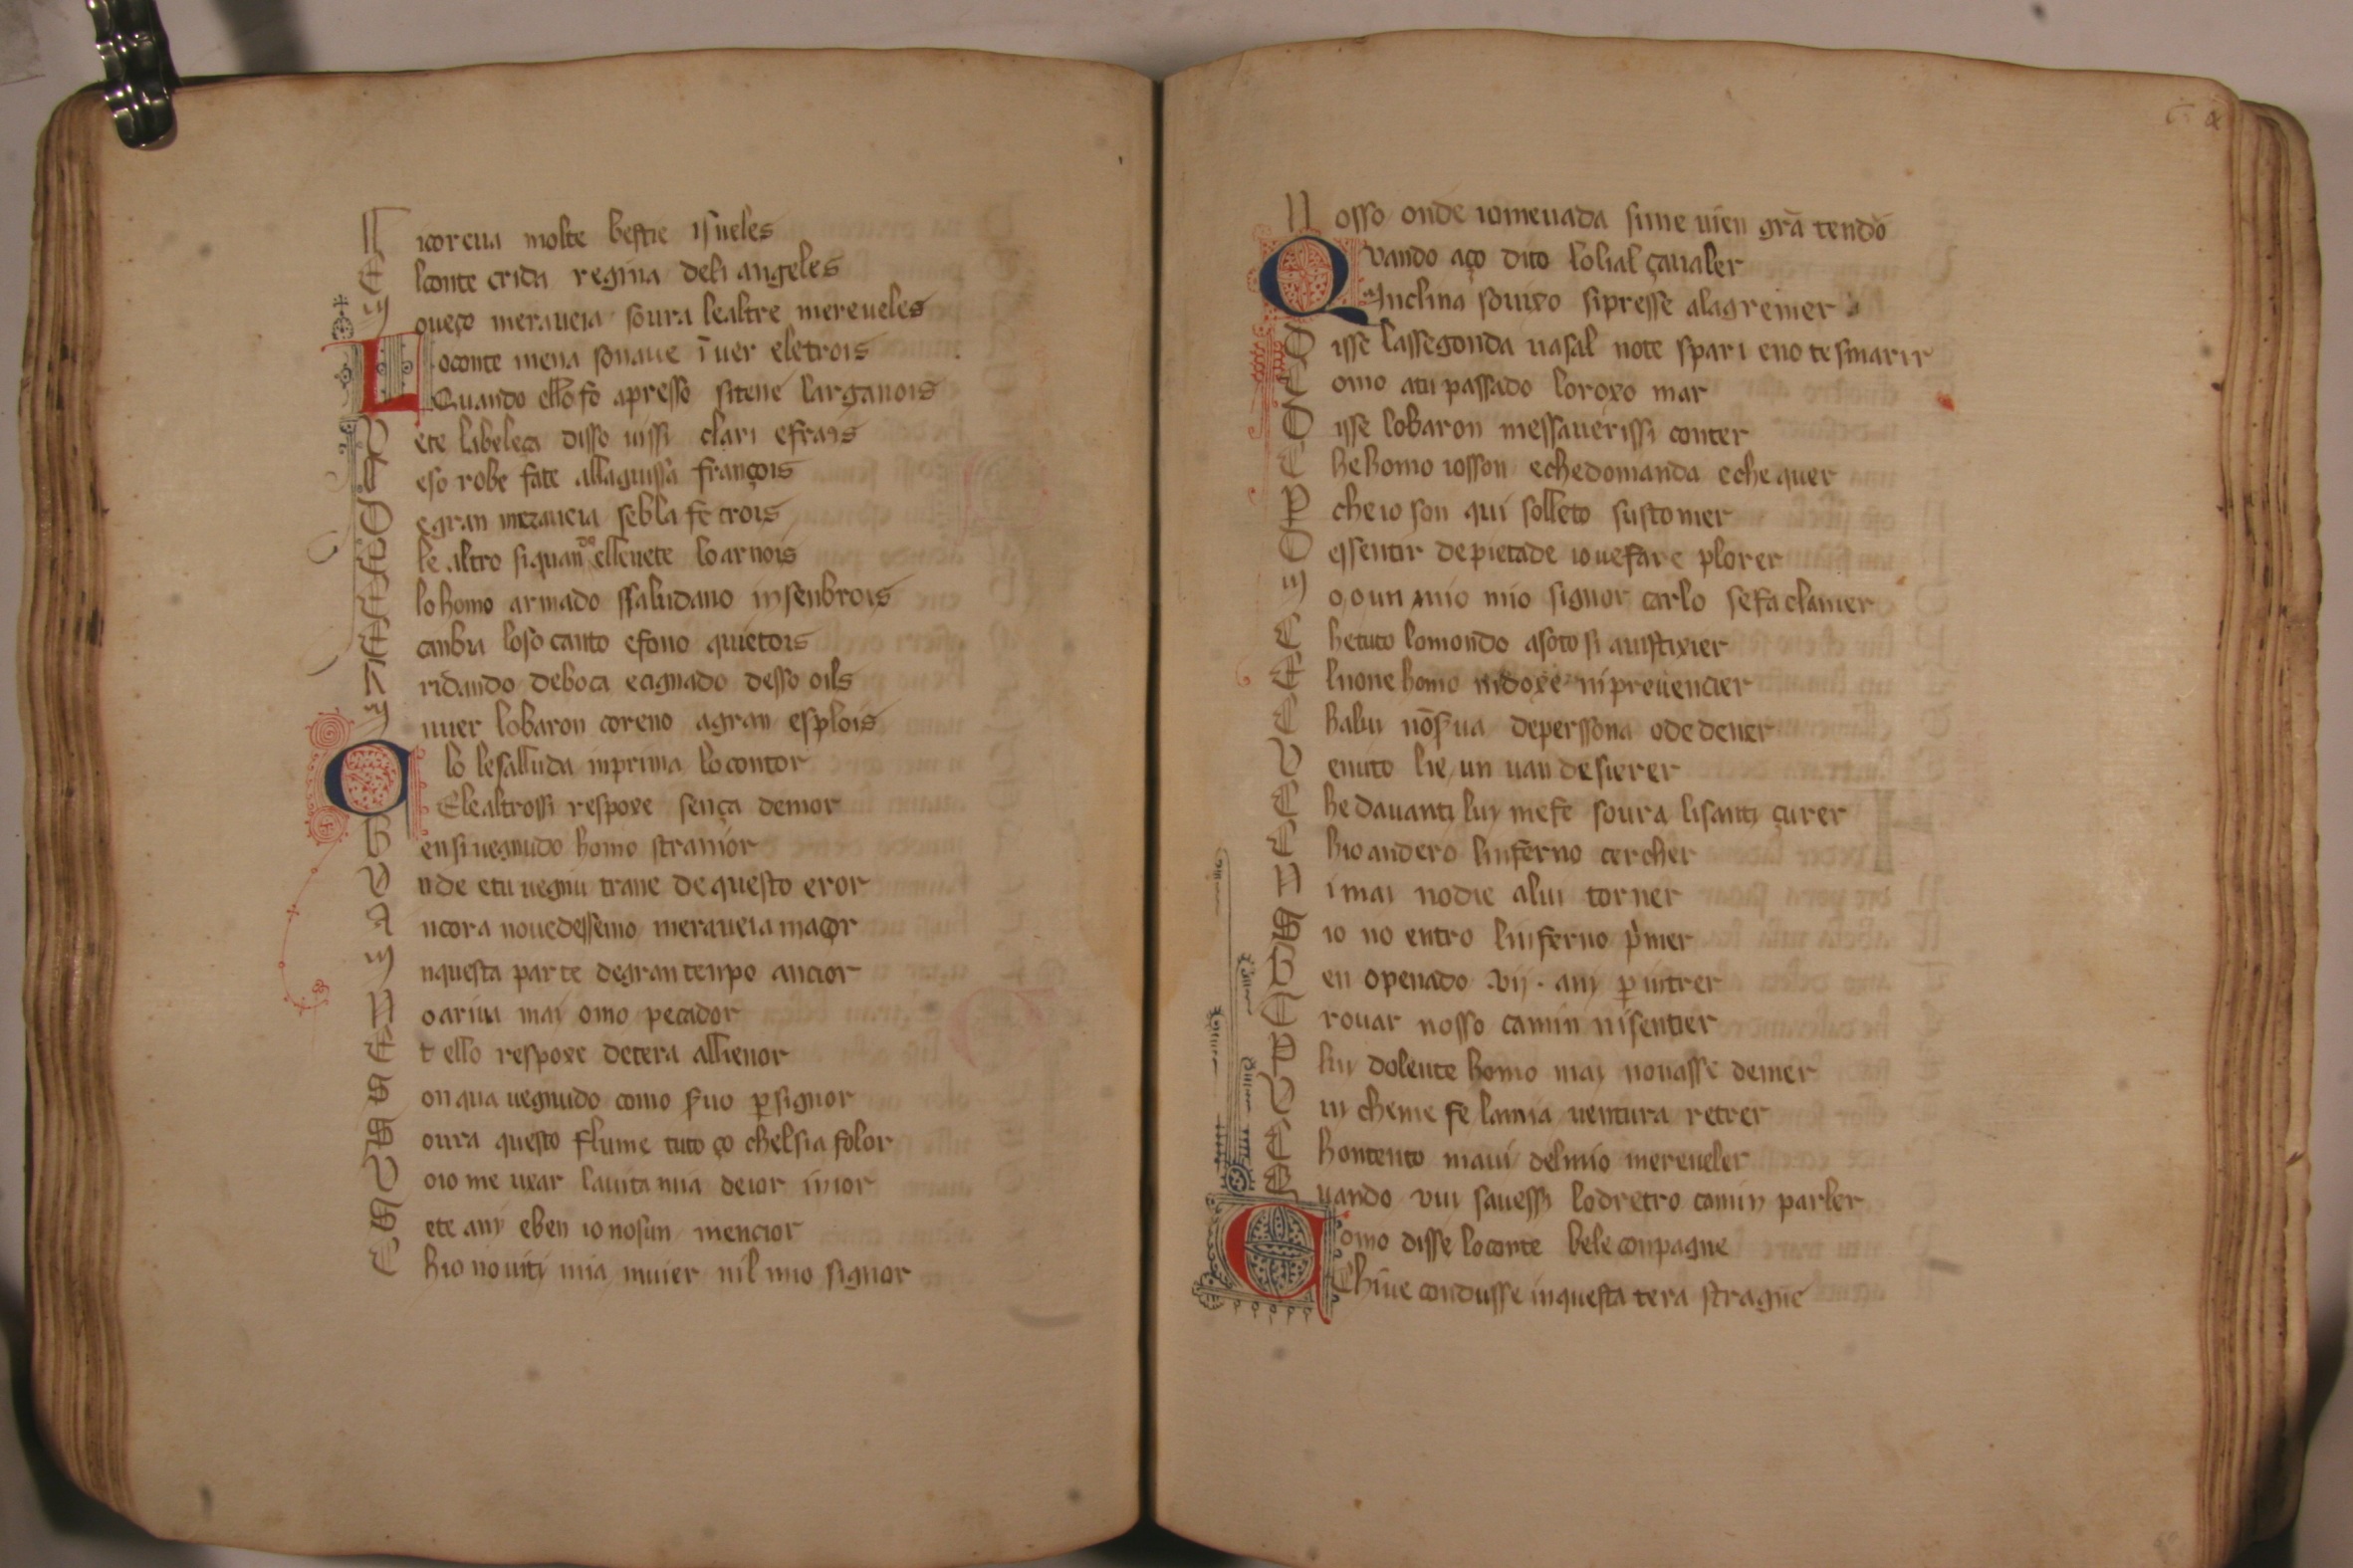 N icoreva molte bestie isneles
E lconte crida regina deli angeles
M oveço meraveia soura lealtre mereveles
L oconte mena sonave ĩver eletrois
Quando ello fo apresso sitene larganois
V ete labeleça disso vissi clari efrais
eso robe fate allaguissa françois
D egran meraveia sebla fe trois
E le altro siquando ellevete lo arnois
E lo homo armado ssaludano insenbrois
E canbu loso canto efono quietois
R idando deboca ecignado desso oils
I nver lobaron coreno agran esplois
Q lo lesalluda inprima lo contor
E lealtrossi respoxe sença demor
B ensi vegnudo homo stranior
O nde etu vegnu trane de questo eror
A ncora novedessemo meraveia maçor
I nquesta parte degran tenpo ancior
N oariva mai omo pecador
E t ello respoxe detera allienor
S on qua vegnudo como s̃vo p̱signor
S oura questo flume tuto ço chelsia folor
V oio me vear lavita mia deior in ior
S ete any eben io nosun mencior
C hio no viti mia muier nil mio signor
N osso onde iomevada sime vien grã tendo
Q vando aço dito lolial çavaler
Inclina sovixo sipresse alagremer
D isse lassegonda vasal note spari eno te smarir
C omo atu passado loroxo mar
D isse lobaron messaverissi conter
C he homo iosson echedomanda eche quer
P che io son qui solleto sustomer
D essentir de pietade iovefare plorer
M o o un mio mio signor carlo sefa clamer
C hetuto lomondo asoto si avistixier
E lnone homo nidoxe ni prevencier
C halui nõs̃va deperssona odedener
V enuto lie un van desierer
C he davanti luy mefe soura lisanti çurer
C hio andero linferno cercher
N i mai nodie alui torner
S io no entro linferno p̃mer
B en openado .vij. any p̱ intrer
T rovar nosso camin nisentier
P luy dolente homo may novasse demer
V uy cheme fe lamia ventura retrer
C hontento mavi delmio mereveler
Q uando vui savessi lodretro camin parler
C omo disse loconte bele conpagne
Chi ve condusse inquesta tera stragne